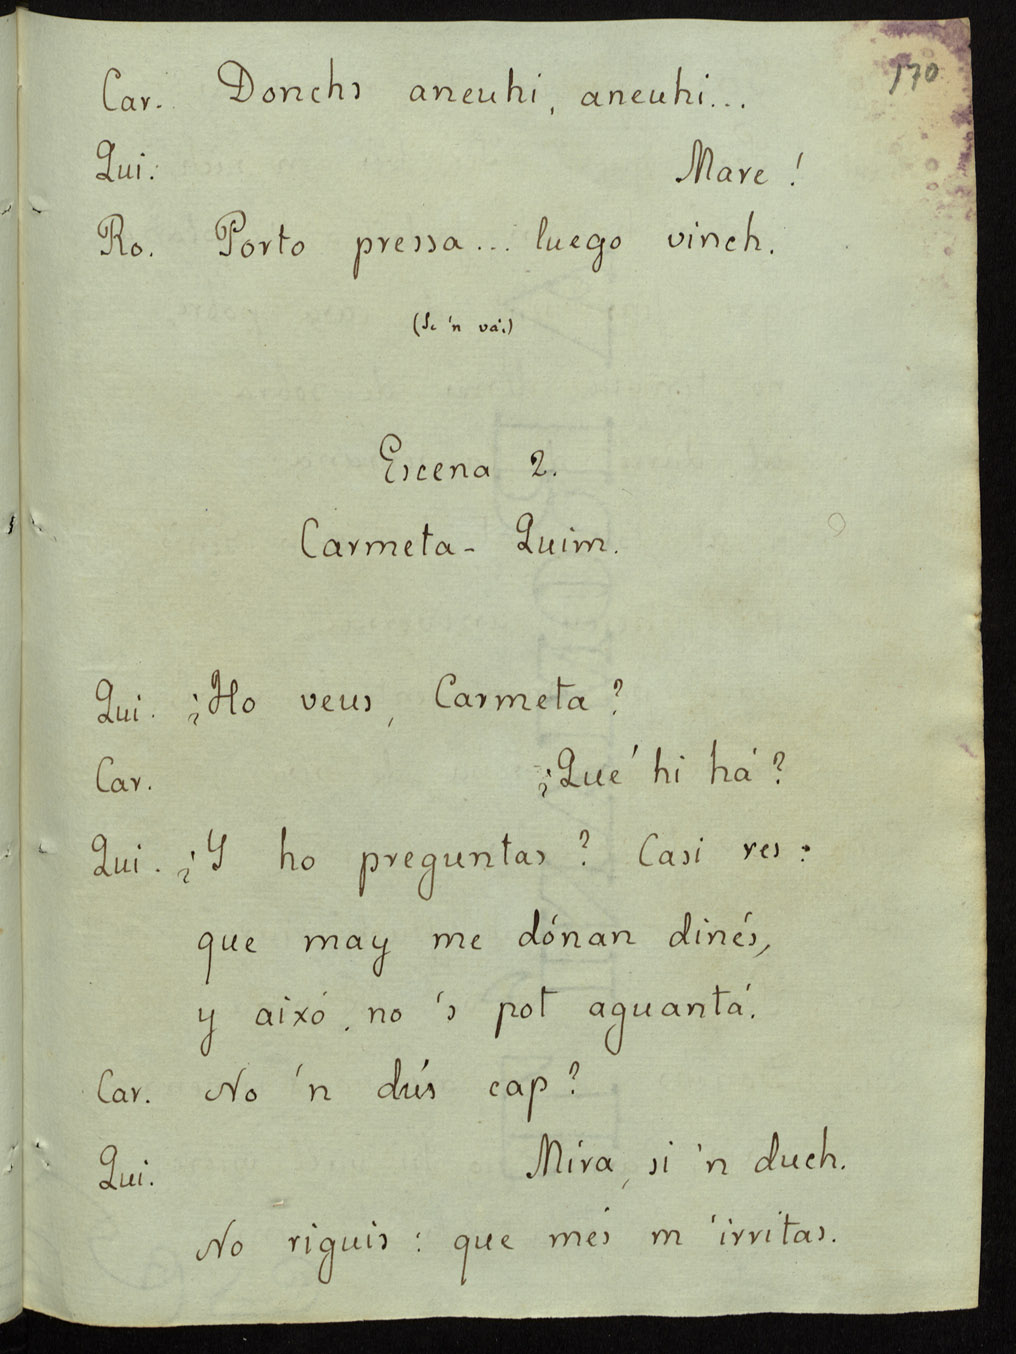 170
Car. Donchs aneuhi, aneuhi...
Qui. Mare!
Ro. Porto pressa... luego vinch.
(Se 'n vá.)
Escena 2.
Carmeta - Quim.
Qui. ¿Ho veus, Carmeta?
Car. ¿Qué hi há?
Qui. ¿Y ho preguntas? Casi res:
que may me dónan dinés,
y aixó, no 's pot aguantá.
Car. No 'n dús cap?
Qui. Mira, si 'n duch.
No riguis: que més m' irritas.